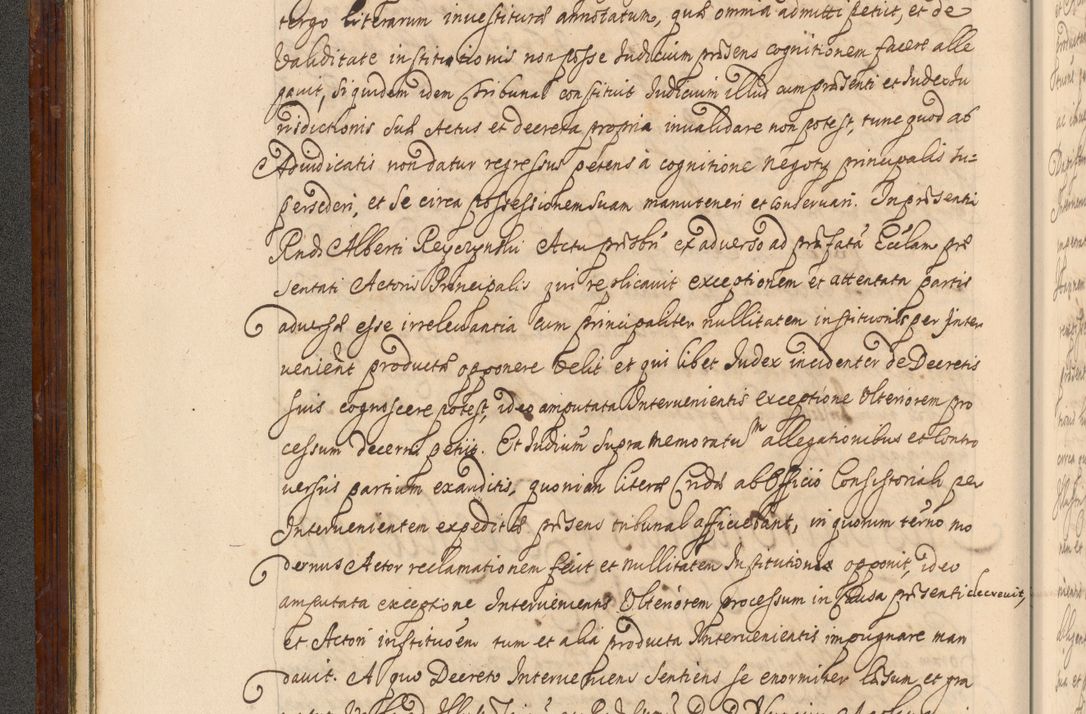 tergo literarum investituræ annotatum, quæ omnia admitti petiit, et de
validitate institutionis non posse Iudicium præsens cognitionem facere alle
gavit, siquidem idem Tribunal constituit Iudicium illud cum præsenti et Iudex Iu
risdictionis suæ Actus et decreta propria invalidare non potest, tunc quod ab
Adiudicatis non datur regressus petens à cognitione negoty principalis su=
persederi, et se circa possessionem suam manuteneri et conservari. In præsenti
Rndi Alberti Reyczynski Actu præsbri ex adverso ad præfatã Ecclam præ
sentati Actoris Principalis qui replicavit exceptionem et attentata partis
adversæ esse irrelevantia cum principaliter nullitatem institutionis per Inter
venient̃ productæ opponere velit et quilibet Iudex incidenter de Decretis
suis cognoscere potest, ideo amputata Intervenientis exceptione Ulteriorem pro
cessum decerni petiit. Et Iudium supra memoratum allegationibus et Contro
versiis partium exauditis, quoniam literæ Cridæ ab Officio Consistoriali per
Intervenientem expeditæ præsens tribunal afficiebant, in quorum termo mo
dernus Actor reclamationem fecit et nullitatem Institutionis opponit, ideo
amputata exceptione Intervenientis Ulteriorem processum in Causa præsenti decrevit,
et Actori institutoem tum et alia producta Intervenientis impugnare man
davit. A quo Decreto Interveniens sentiens se enormiter læsum et gra